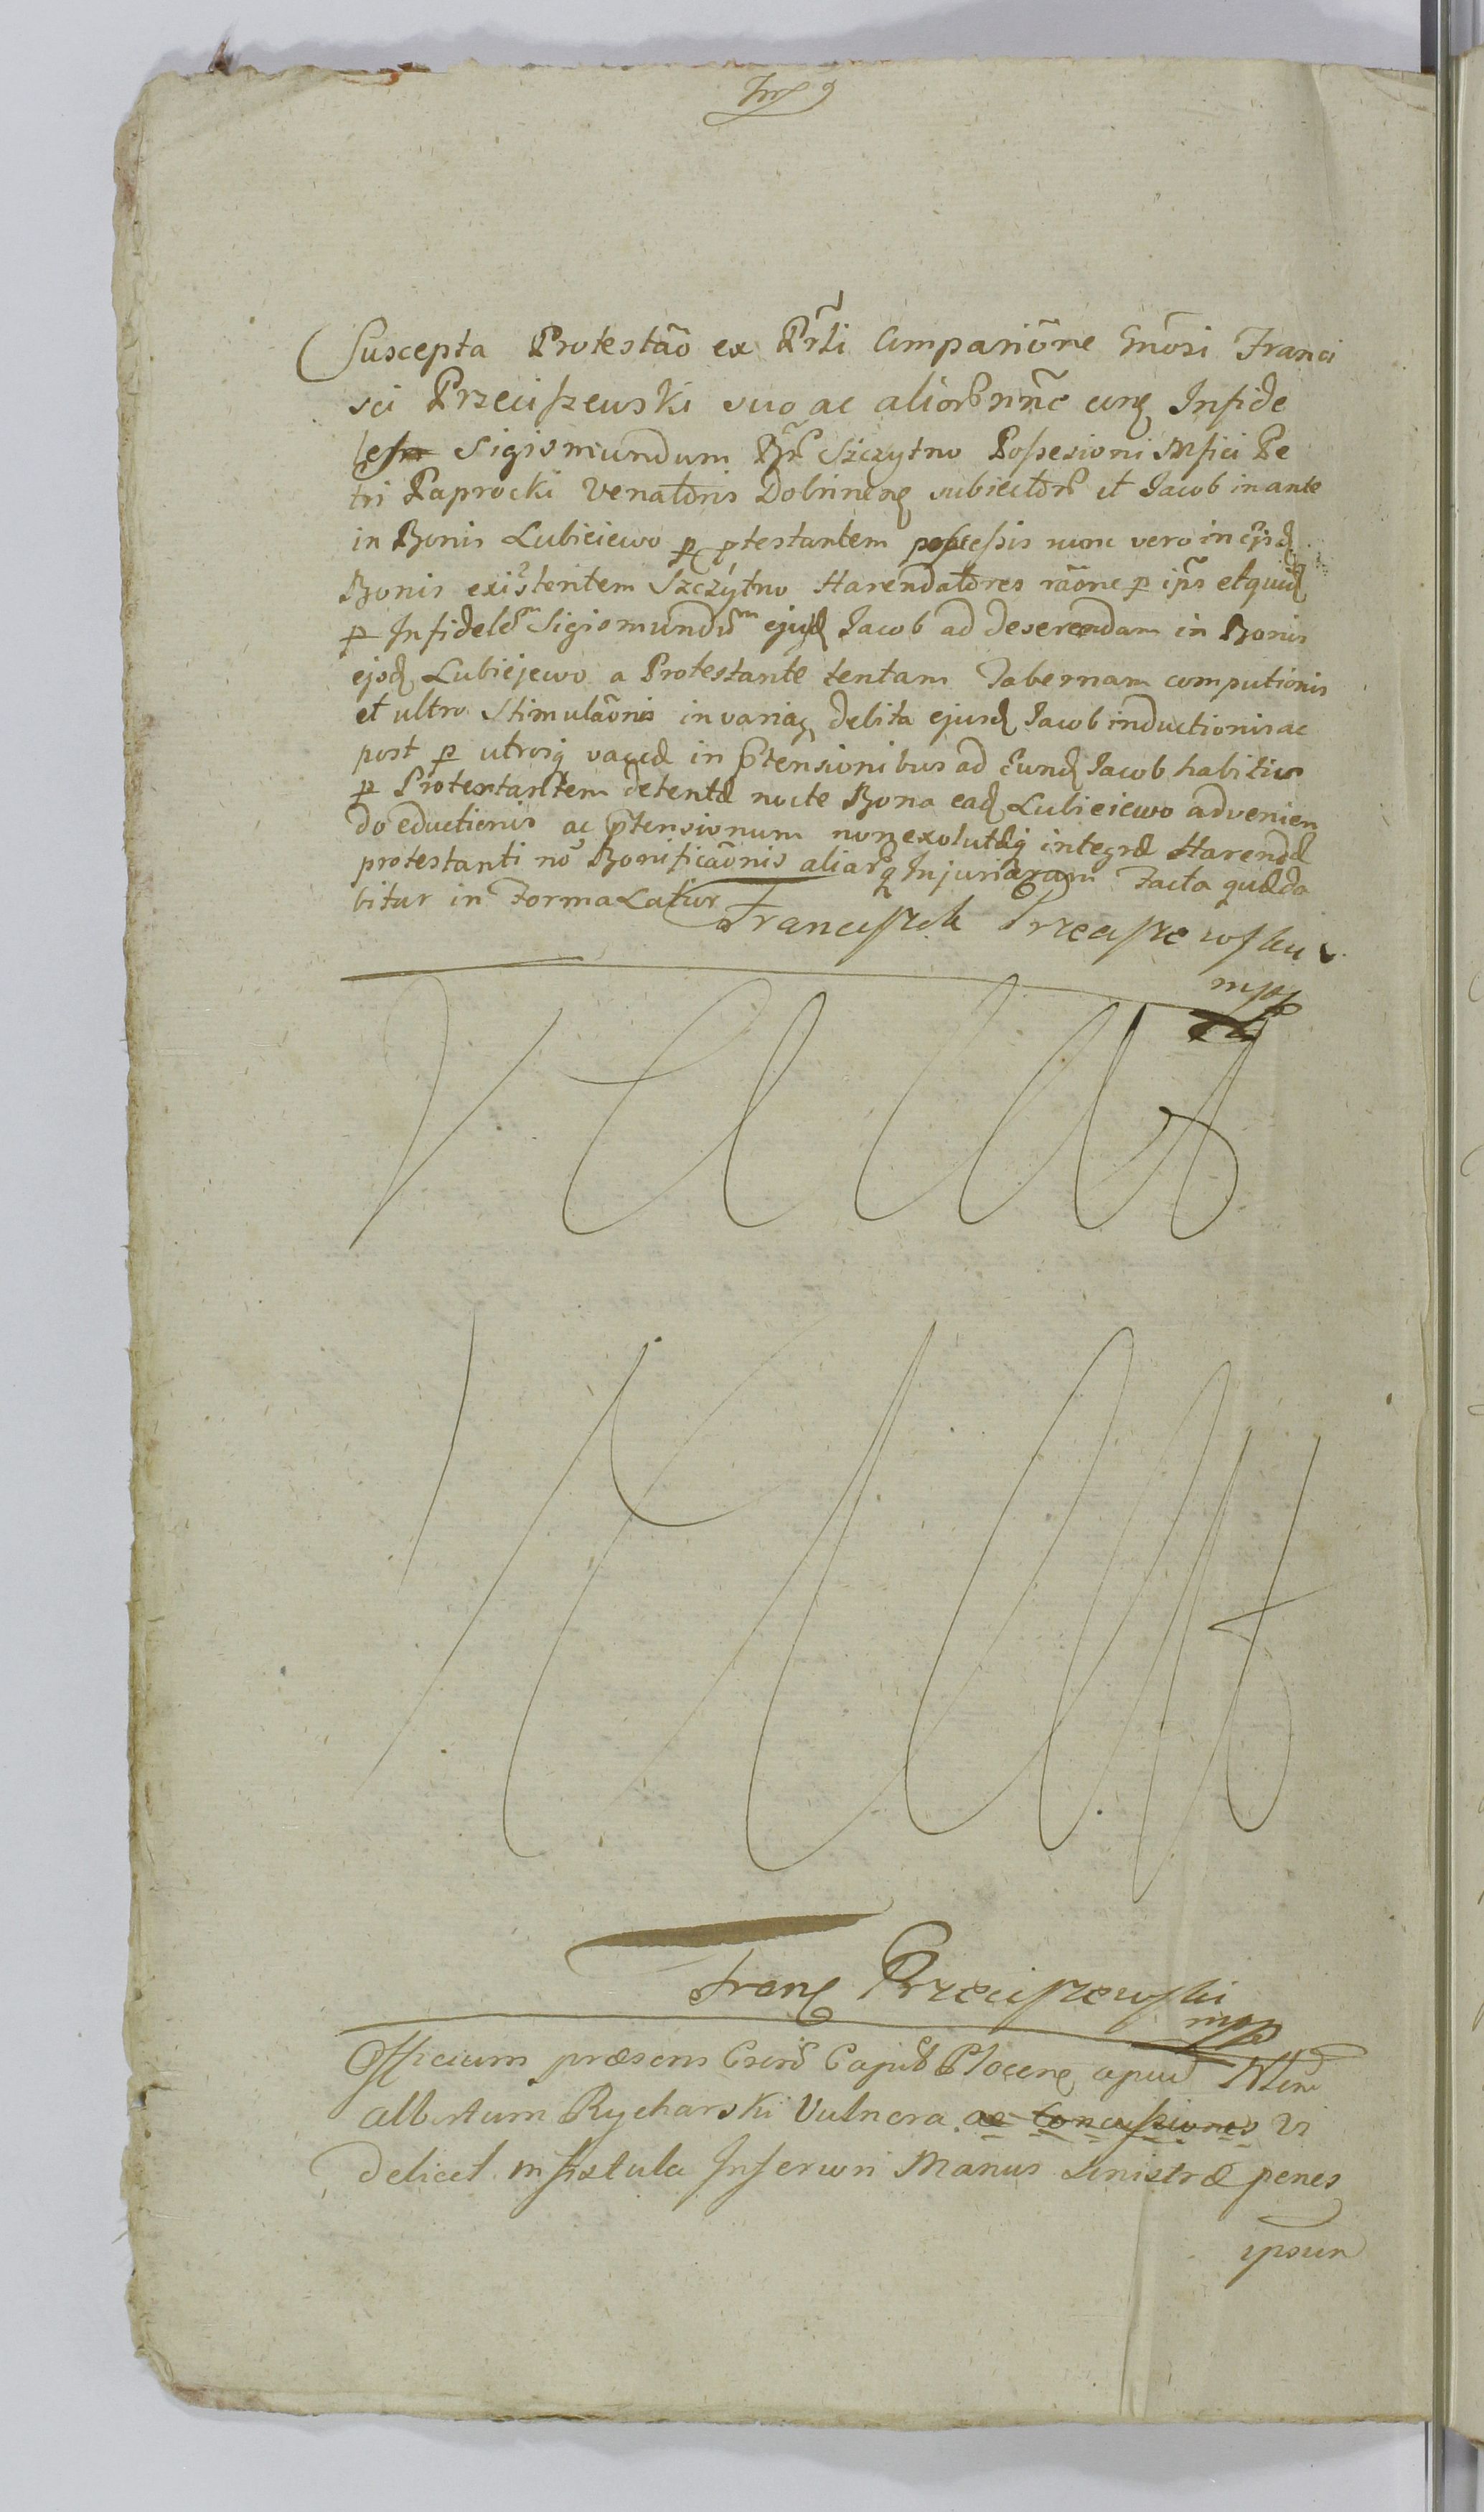 Suscepta Protestão ex Prśli Comparitõne Gnõsi Franci
sci Przeciszewski suo ac aliorũ nñe ctrą Infide
les Sigismundum Bñr Szczytno Possesioni Mfici Pe
tri Paprocki Venatõris Dobrinenę subiectõr et Jacob in ante
in Bonis Lubieiewo p ptestantem possessis nunc vero in ejsd
Bonis existentem Szczytno Harendatõres rãõne p ipũ et quid
p Infidelẽm Sigismundũm ejusd Jacob ad deserendam in Bonis
ejsd Lubiejewo a Protestante tentam Tabernam computionis
et ultro Stimulãõnis in varia debita ejusd Jacob inductionis ac
post p utrosq in ptensionibus ad Eund Jacob habitis
p Protestantem detentæ nocte Bona ead Lubieiewo advenien
do eductionis ac ptensionum non exolutæq integræ Harendæ
protestanti nõ Bonificãõnis aliarq Injuriaram Facta quæ da
bitur in Forma Latior
Franciszek Przeciszewski
mpp
Franc Przeciszewski
mpp
Officium præsens Capit Plocenę apud
Albertum Rycharski Vulnera ac Concussiones vi
delicet in fistula Inferiori Manus Sinistræ penes
ipsum